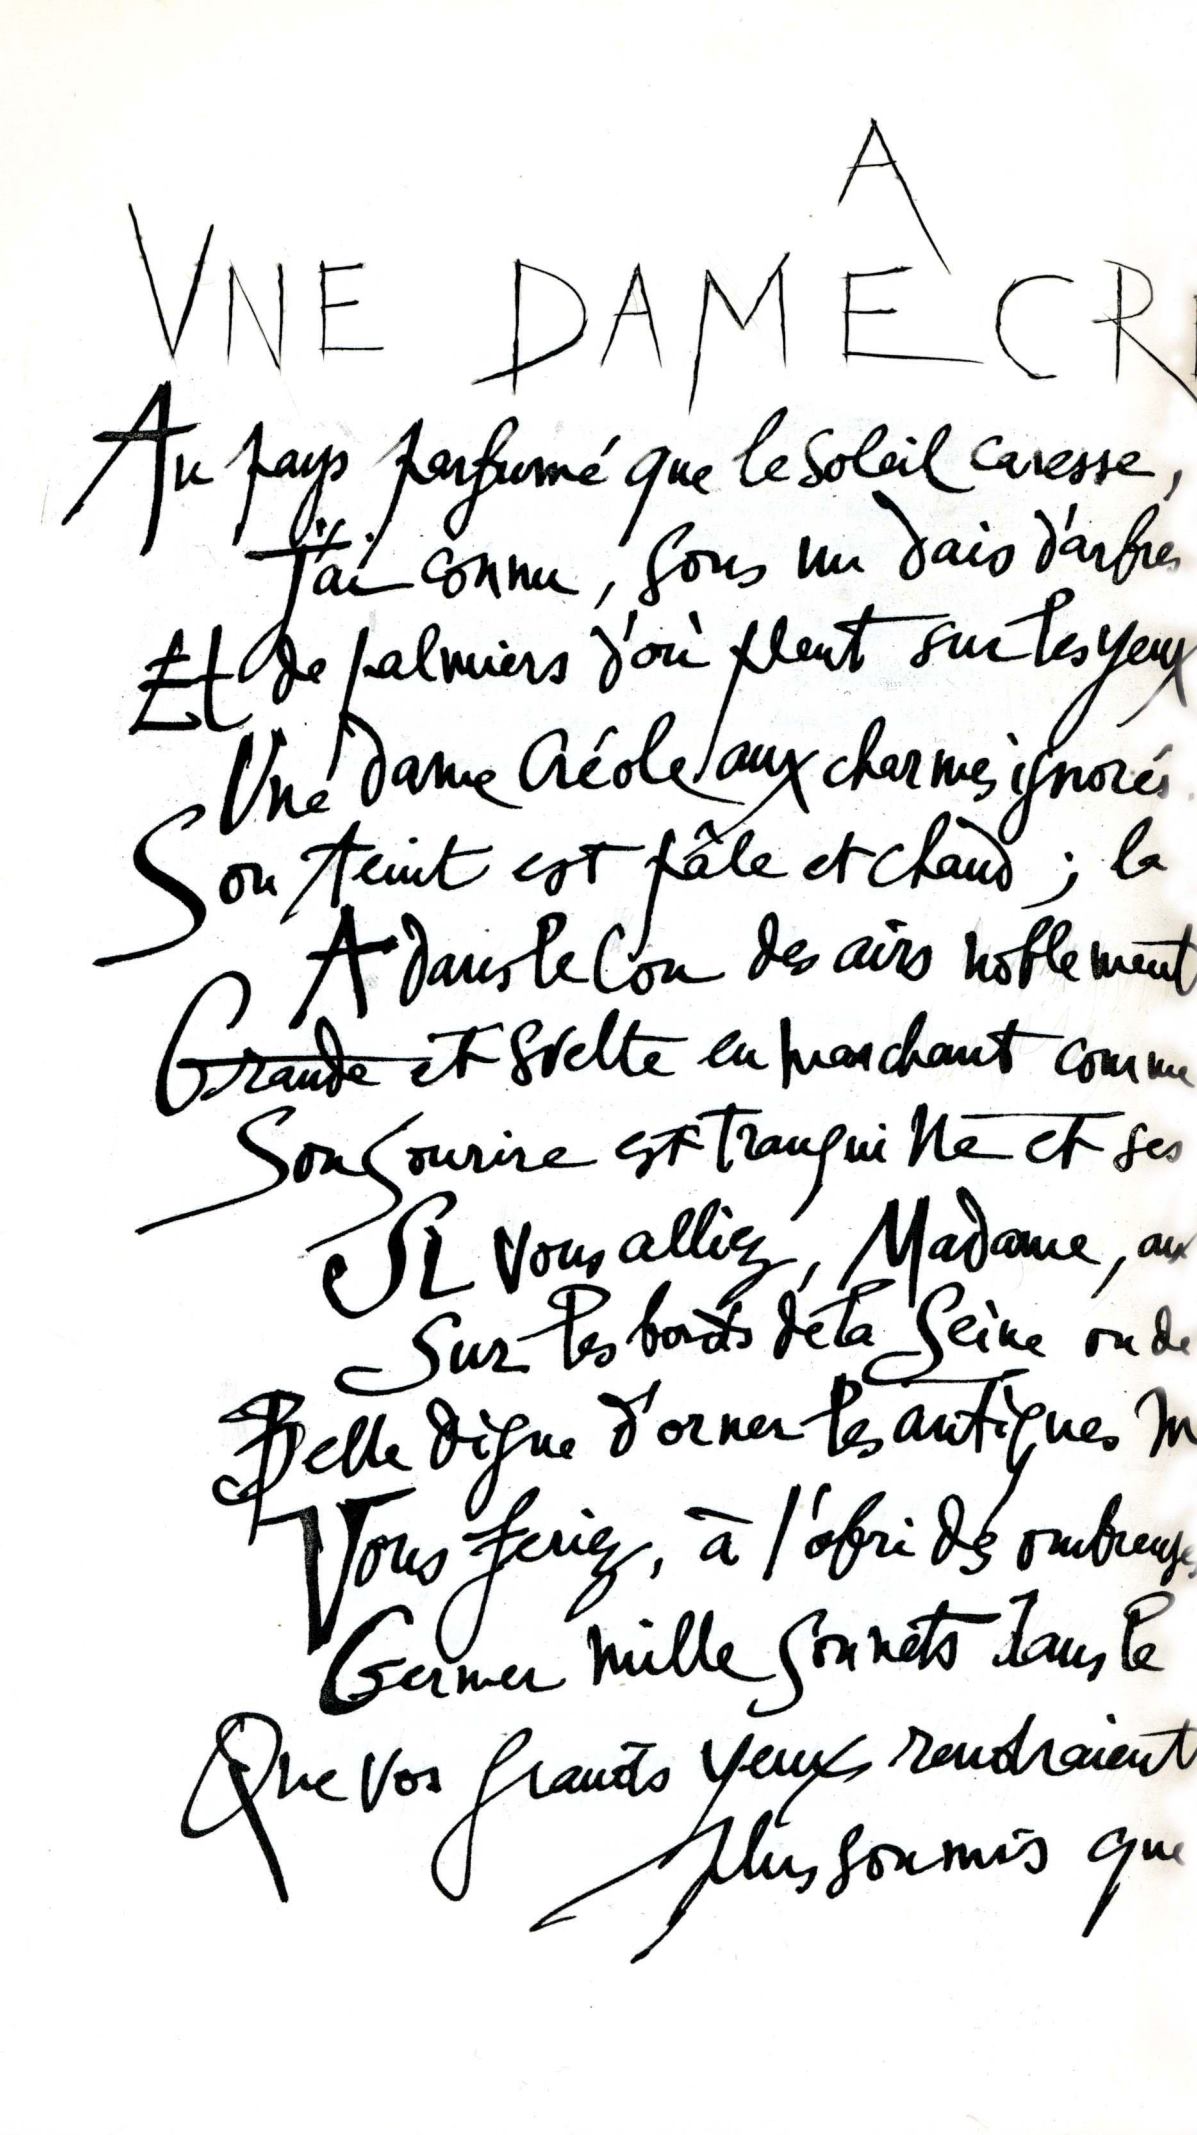 A
VNE DAME CR
Au pays parfumé que le soleil caresse,
J'ai connu, sous un dais d'arbres
Et de palmiers d'où pleut sur les yeux
Une dame Créole aux charmes ignorés.
Son teint est pâle et chaud ; la
A dans le cou des airs noblement
Grande et svelte en marchant comme
Son sourire est tranquille et ses
Si vous alliez, Madame, aux
Sur les bords de la Seine ou de
Belle digne d'orner les antiques m
Vous feriez, à l'abri des ombreuses
Germer mille sonnets dans le
Que vos grands yeux rendraient
plus soumis que